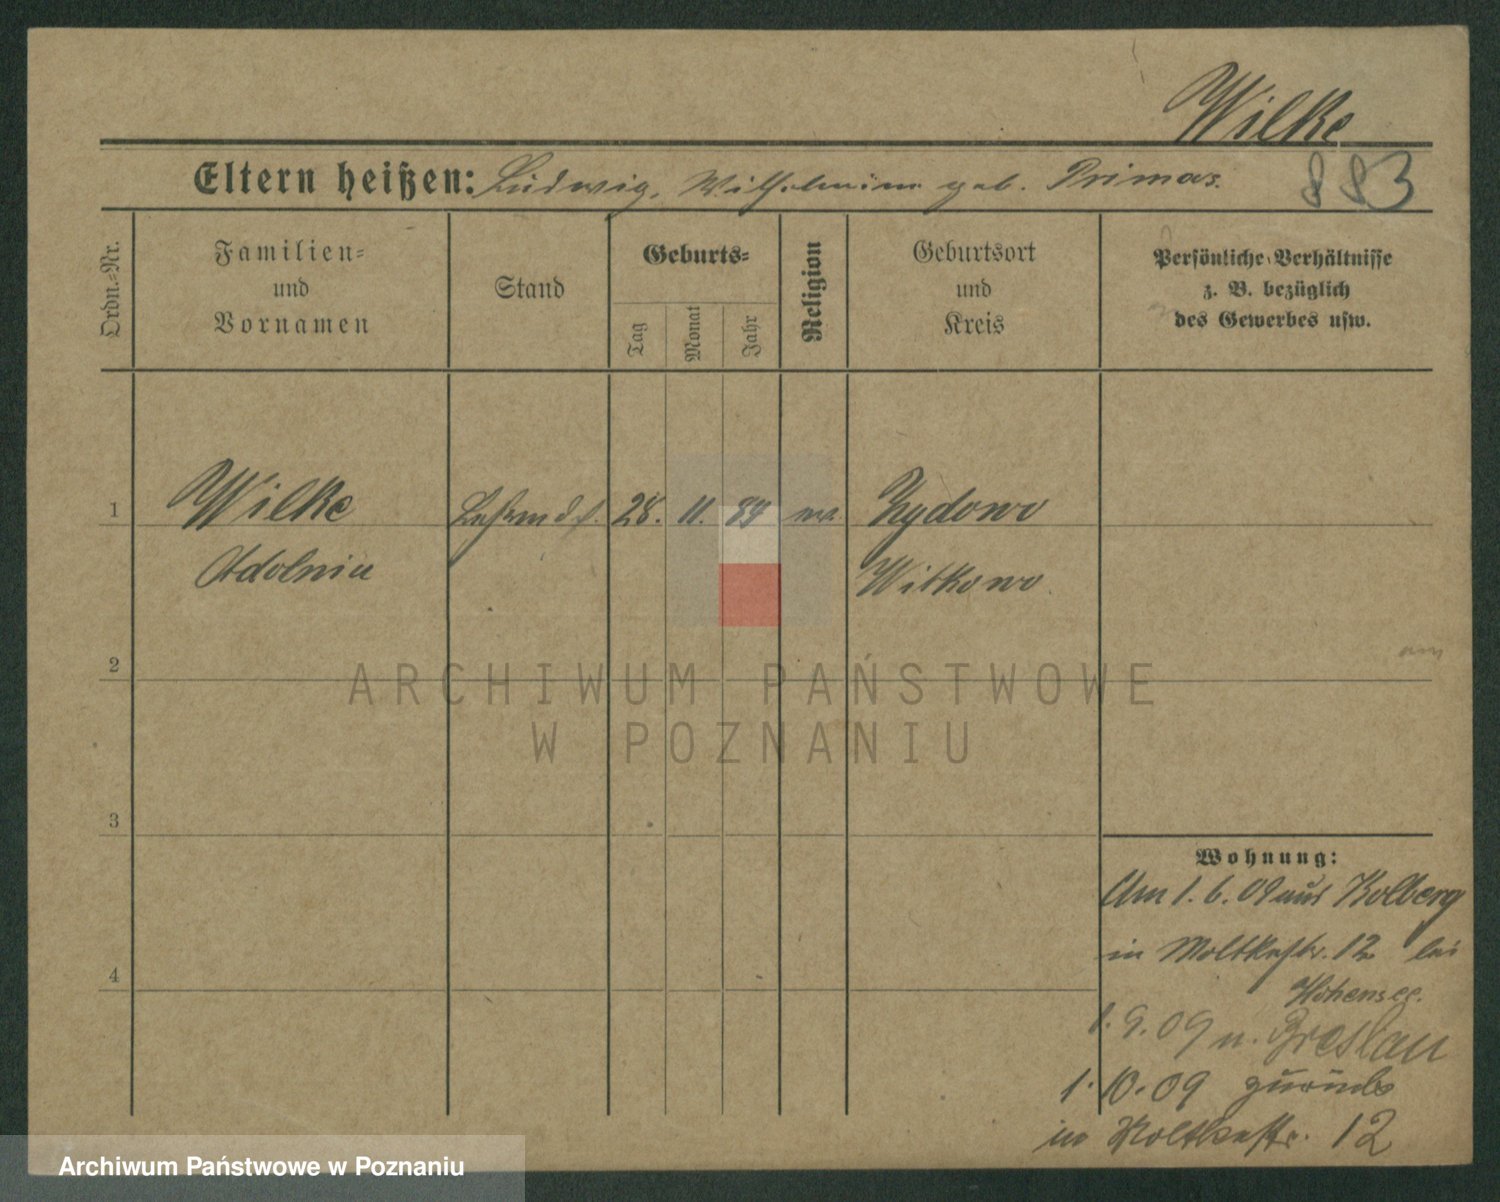 Wilke
Eltern heißen: Ludwig, Wilhelmine geb. Primas.
883
Ordn.-Nr.
Familien-
und
Vornamen
Stand
Geburts-
Tag
Monat
Jahr
Religion
Geburtsort
und
Kreis
Persönliche Verhältnisse
z. B. bezüglich
des Gewerbes usw.
1
Wilke
28. 11. 84
Zydowo
Witkowo
2
ARCHIWUM PAŃSTWOWE
W POZNANIU
3
Wohnung:
Am 1. 6. 09 aus Kolberg
in Moltkestr. 12 bei
Hohensee.
4
1. 9. 09 n. Breslau
1. 10. 09 zurück
in Moltkestr. 12
Archiwum Państwowe w Poznaniu